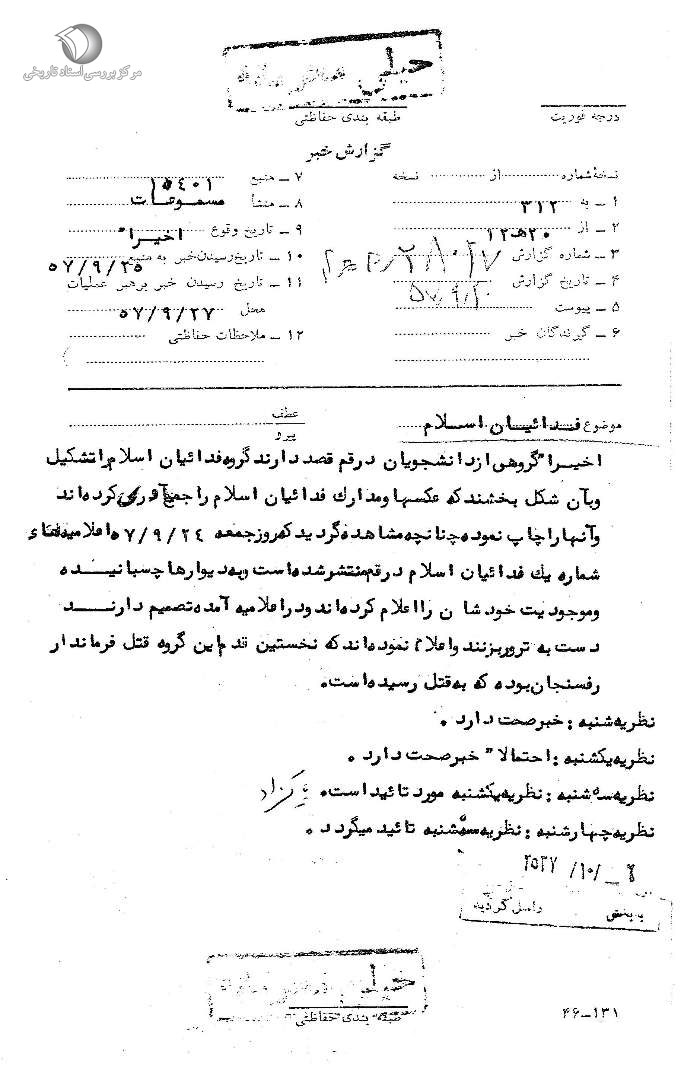 مرکز بررسی اسناد تاریخی
خیلی
درجه فوریت
طبقه بندی حفاظتی
گزارش خبر
نسخهٔ شماره از نسخه
۱ ـ به ۳۱۲
۲ ـ از ۲۰هـ۱۲
۳ ـ شماره گزارش
۴ ـ تاریخ گزارش
۵ ـ پیوست
۶ ـ گیرندگان خبر
۷ ـ منبع ۱۵۴۰۱
۸ ـ منشأ مسموعات
۹ ـ تاریخ وقوع اخیرا"
۱۰ ـ تاریخ رسیدن خبر به منبع ۵۷/۹/۲۵
۱۱ ـ تاریخ رسیدن خبر برهبر عملیات
محل ۵۷/۹/۲۷
۱۲ ـ ملاحظات حفاظتی
موضوع فدائیان اسلام
عطف
پیرو
اخیرا" گروهی از دانشجویان در قم قصد دارند گروه فدائیان اسلام را تشکیل
و بآن شکل بخشند که عکسها و مدارک فدائیان اسلام را جمع آوری کرده اند
و آنها را چاپ نموده چنانچه مشاهده گردید که روز جمعه ۵۷/۹/۲۴ اعلامیه های
شماره یک فدائیان اسلام در قم منتشر شده است و به دیوارها چسبانیده
و موجودیت خود شان را اعلام کرده اند و در اعلامیه آمده تصمیم دارند
دست به ترور بزنند و اعلام نموده اند که نخستین قدم این گروه قتل فرماندار
رفسنجان بوده که به قتل رسیده است.
نظریه شنبه : خبر صحت دارد .
نظریه یکشنبه : احتمالا" خبر صحت دارد .
نظریه سه شنبه : نظریه یکشنبه مورد تائید است.
نظریه چهارشنبه : نظریه سه شنبه تائید میگردد .
به بخش
خیلی
طبقه بندی حفاظتی
۴۶-۱۳۱